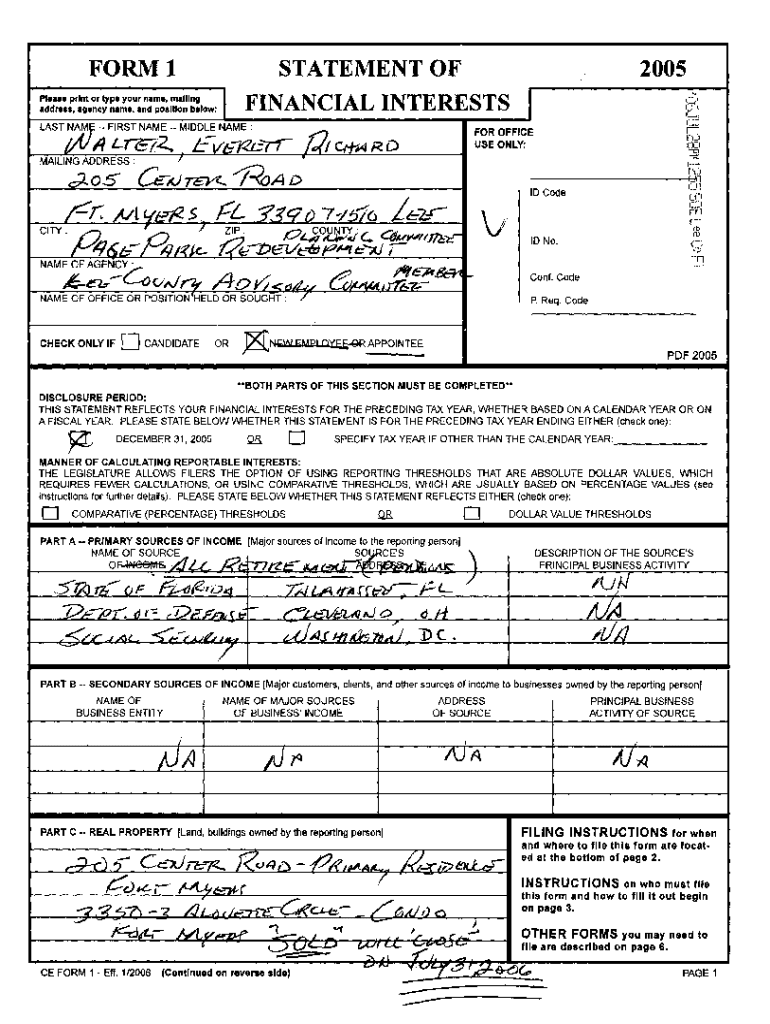 FORM 1 STATEMENT OF 2005
Please print or type your name, mailing address, agency name, and position below: FINANCIAL INTERESTS
LAST NAME -- FIRST NAME -- MIDDLE NAME :
WALTER, EVERETT RICHARD
MAILING ADDRESS :
205 CENTER ROAD
FT. MYERS, FL 33907-1510 LEE
CITY : ZIP : COUNTY :
PAGE PARK REDEVELOPMENT PLANNING COMMITTEE
NAME OF AGENCY :
LEE COUNTY ADVISORY COMMITTEE MEMBER
NAME OF OFFICE OR POSITION HELD OR SOUGHT :
CHECK ONLY IF CANDIDATE OR NEW EMPLOYEE OR APPOINTEE
FOR OFFICE
USE ONLY:
ID Code
ID No.
Conf. Code
P. Req. Code
PDF 2005
**BOTH PARTS OF THIS SECTION MUST BE COMPLETED**
DISCLOSURE PERIOD:
THIS STATEMENT REFLECTS YOUR FINANCIAL INTERESTS FOR THE PRECEDING TAX YEAR, WHETHER BASED ON A CALENDAR YEAR OR ON
A FISCAL YEAR. PLEASE STATE BELOW WHETHER THIS STATEMENT IS FOR THE PRECEDING TAX YEAR ENDING EITHER (check one):
DECEMBER 31, 2005 OR SPECIFY TAX YEAR IF OTHER THAN THE CALENDAR YEAR:
MANNER OF CALCULATING REPORTABLE INTERESTS:
THE LEGISLATURE ALLOWS FILERS THE OPTION OF USING REPORTING THRESHOLDS THAT ARE ABSOLUTE DOLLAR VALUES, WHICH
REQUIRES FEWER CALCULATIONS, OR USING COMPARATIVE THRESHOLDS, WHICH ARE USUALLY BASED ON PERCENTAGE VALUES (see
instructions for further details). PLEASE STATE BELOW WHETHER THIS STATEMENT REFLECTS EITHER (check one):
COMPARATIVE (PERCENTAGE) THRESHOLDS OR DOLLAR VALUE THRESHOLDS
PART A -- PRIMARY SOURCES OF INCOME [Major sources of income to the reporting person]
NAME OF SOURCE SOURCE'S DESCRIPTION OF THE SOURCE'S
OF INCOME ADDRESS PRINCIPAL BUSINESS ACTIVITY
ALL RETIREMENT (PENSIONS)
STATE OF FLORIDA TALAHASSEE, FL N/N
DEPT. OF DEFENSE CLEVELAND, OH NA
SOCIAL SECURITY WASHINGTON, DC. NA
PART B -- SECONDARY SOURCES OF INCOME [Major customers, clients, and other sources of income to businesses owned by the reporting person]
NAME OF NAME OF MAJOR SOURCES ADDRESS PRINCIPAL BUSINESS
BUSINESS ENTITY OF BUSINESS' INCOME OF SOURCE ACTIVITY OF SOURCE
NA NA NA NA
PART C -- REAL PROPERTY [Land, buildings owned by the reporting person]
205 CENTER ROAD - PRIMARY RESIDENCE
FORT MYERS
3350-3 ALOUETTE CIRCLE - CONDO
FORT MYERS "SOLD" WILL "CLOSE"
ON JULY 31 2006
FILING INSTRUCTIONS for when
and where to file this form are locat-
ed at the bottom of page 2.
INSTRUCTIONS on who must file
this form and how to fill it out begin
on page 3.
OTHER FORMS you may need to
file are described on page 6.
CE FORM 1 - Eff. 1/2006 (Continued on reverse side) PAGE 1